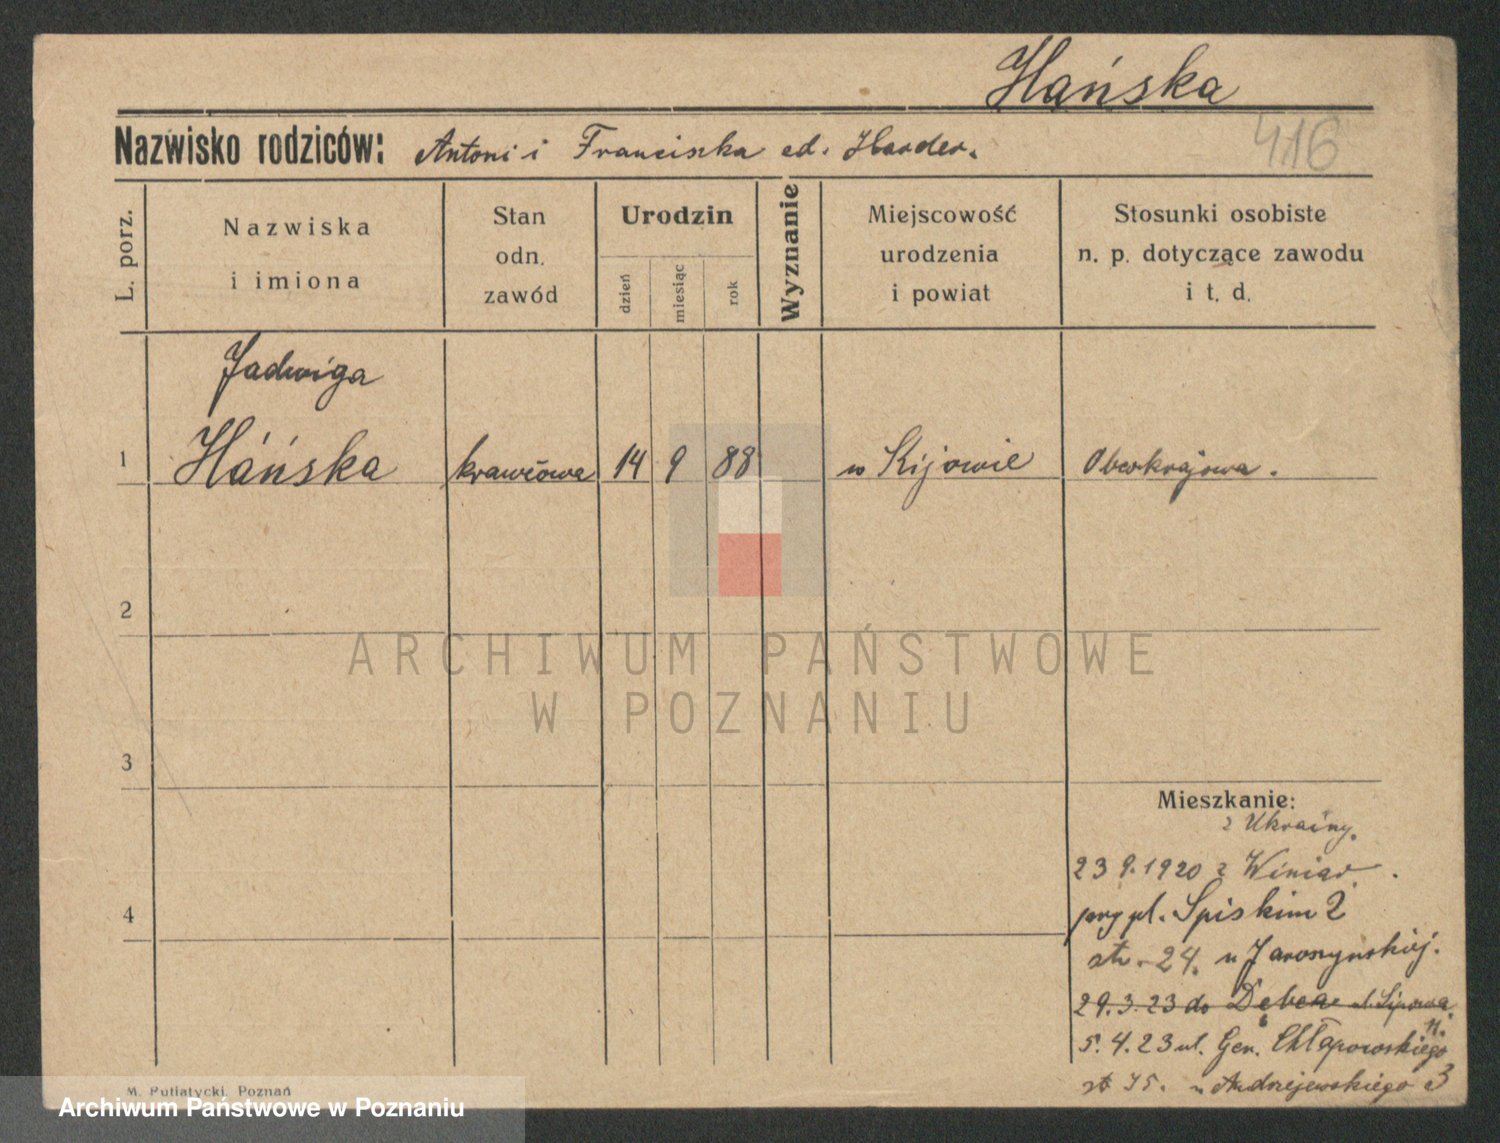 Hańska
Nazwisko rodziców: Antoni i Franciszka cd. Harder.
416
L. porz.
Nazwiska
i imiona
Stan
odn.
zawód
Urodzin
dzień
miesiąc
rok
Wyznanie
Miejscowość
urodzenia
i powiat
Stosunki osobiste
n. p. dotyczące zawodu
i t. d.
Jadwiga
1 Hańska krawcowa 14 9 88 w Kijowie Obcokrajowa.
2
ARCHIWUM PAŃSTWOWE
W POZNANIU
3
Mieszkanie:
z Ukrainy.
23 9.1920 z Winiar.
przy pl. Spiskim 2
st. 24. u Jaroszyńskiej.
4
29.3.23 do Dębca ul. Lipowa
11.
5.4.23 ul. Gen. Chłapowskiego
st 75. u Andrzejewskiego 3
M. Putiatycki, Poznań
Archiwum Państwowe w Poznaniu